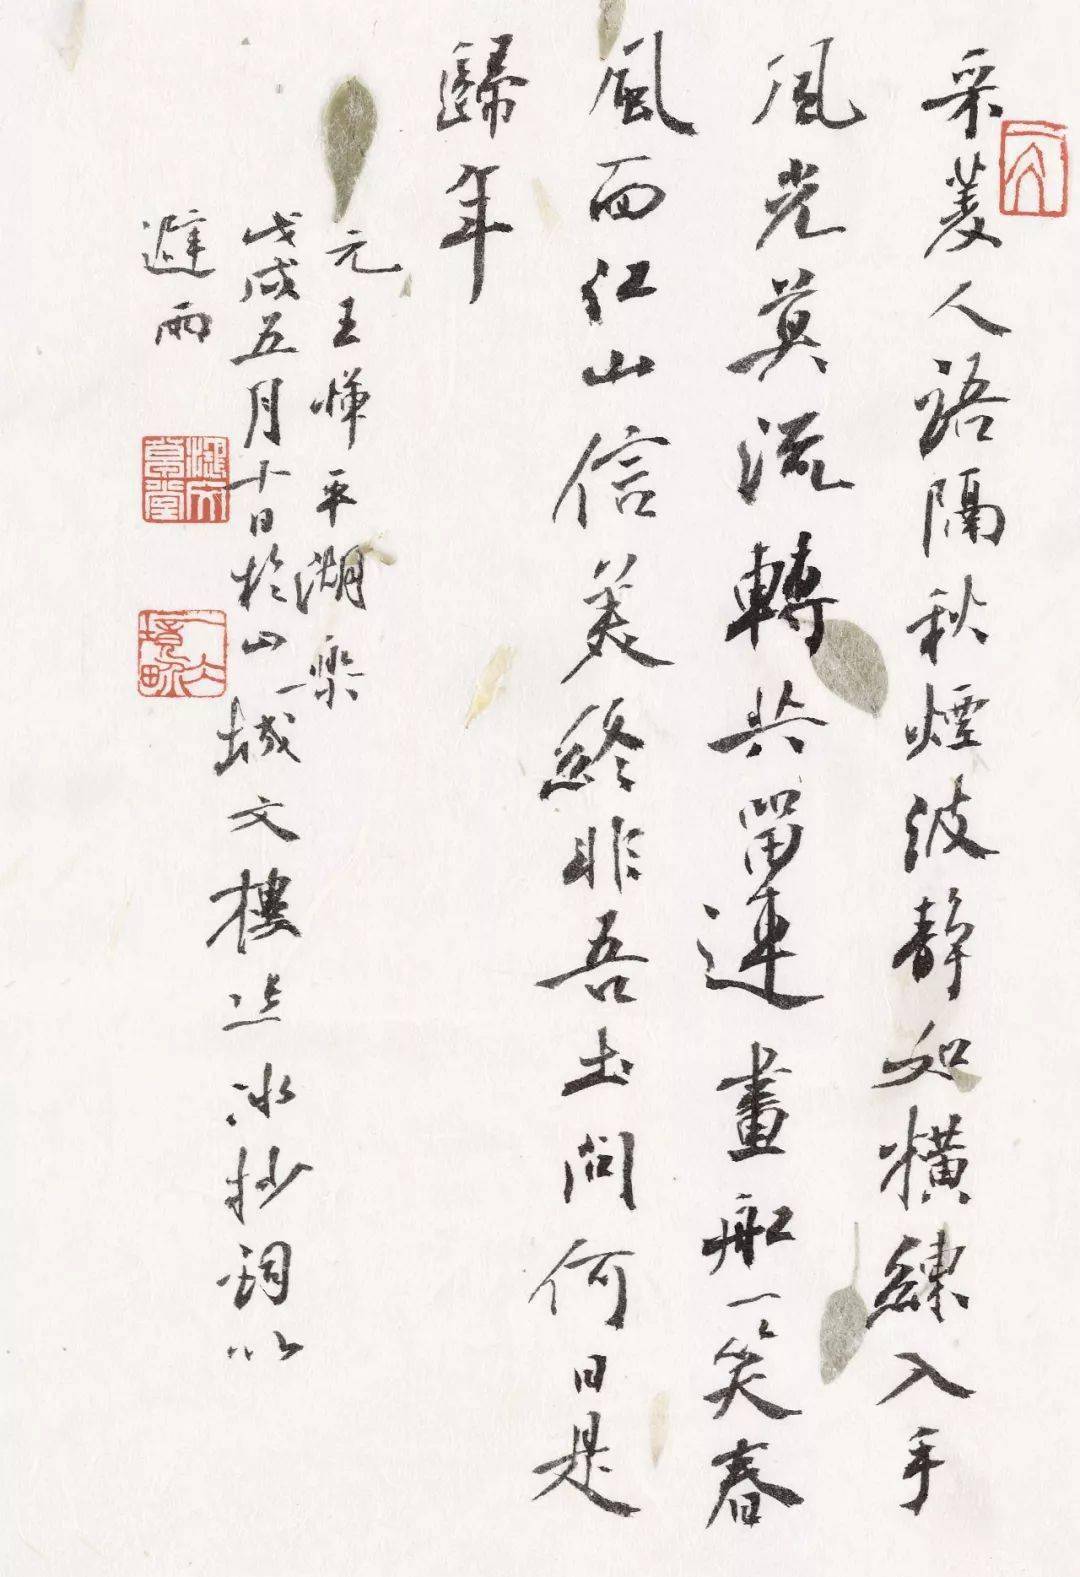 采菱人語隔秋煙波靜如橫練入手
風光莫流轉共留連畫船一笑春
風面江山信美終非吾土問何日是
歸年
元王惲平湖樂
戊戌五月十日於山城文樓冰抄詞以
避雨